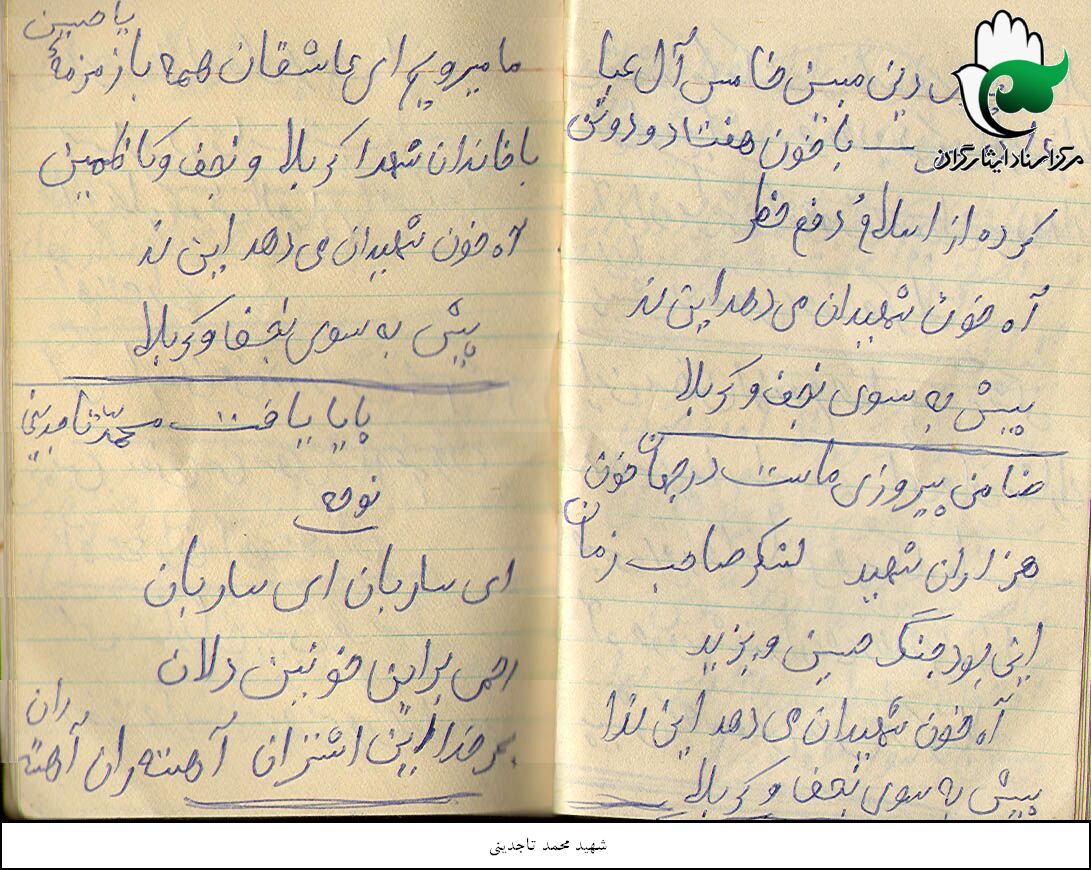 مرکز اسناد ایثارگران
دین مبین خامس آل عبا
با خون هفتاد و دو تن
کرده از اسلام دفع خطر
آه خون شهیدان می دهد این ند
پیش به سوی نجف و کربلا
ضامن پیروزی ماست در جهان خون
هزاران شهید لشکر صاحب زمان
این بود جنگ حسین و یزید
آه خون شهیدان می دهد این ندا
پیش به سوی نجف و کربلا
یا حسین
ما میرویم ای عاشقان همه با زمزمهٔ
با خاندان شهدا کربلا و نجف و کاظمین
آه خون شهیدان می دهد این ند
پیش به سوی نجف و کربلا
پایا یافت محمد تاجدینی
نوحه
ای ساربان ای ساربان
رحمی بر این خونین دلان
بهر خدا این اشتران آهسته ران آهسته
ران
شهید محمد تاجدینی